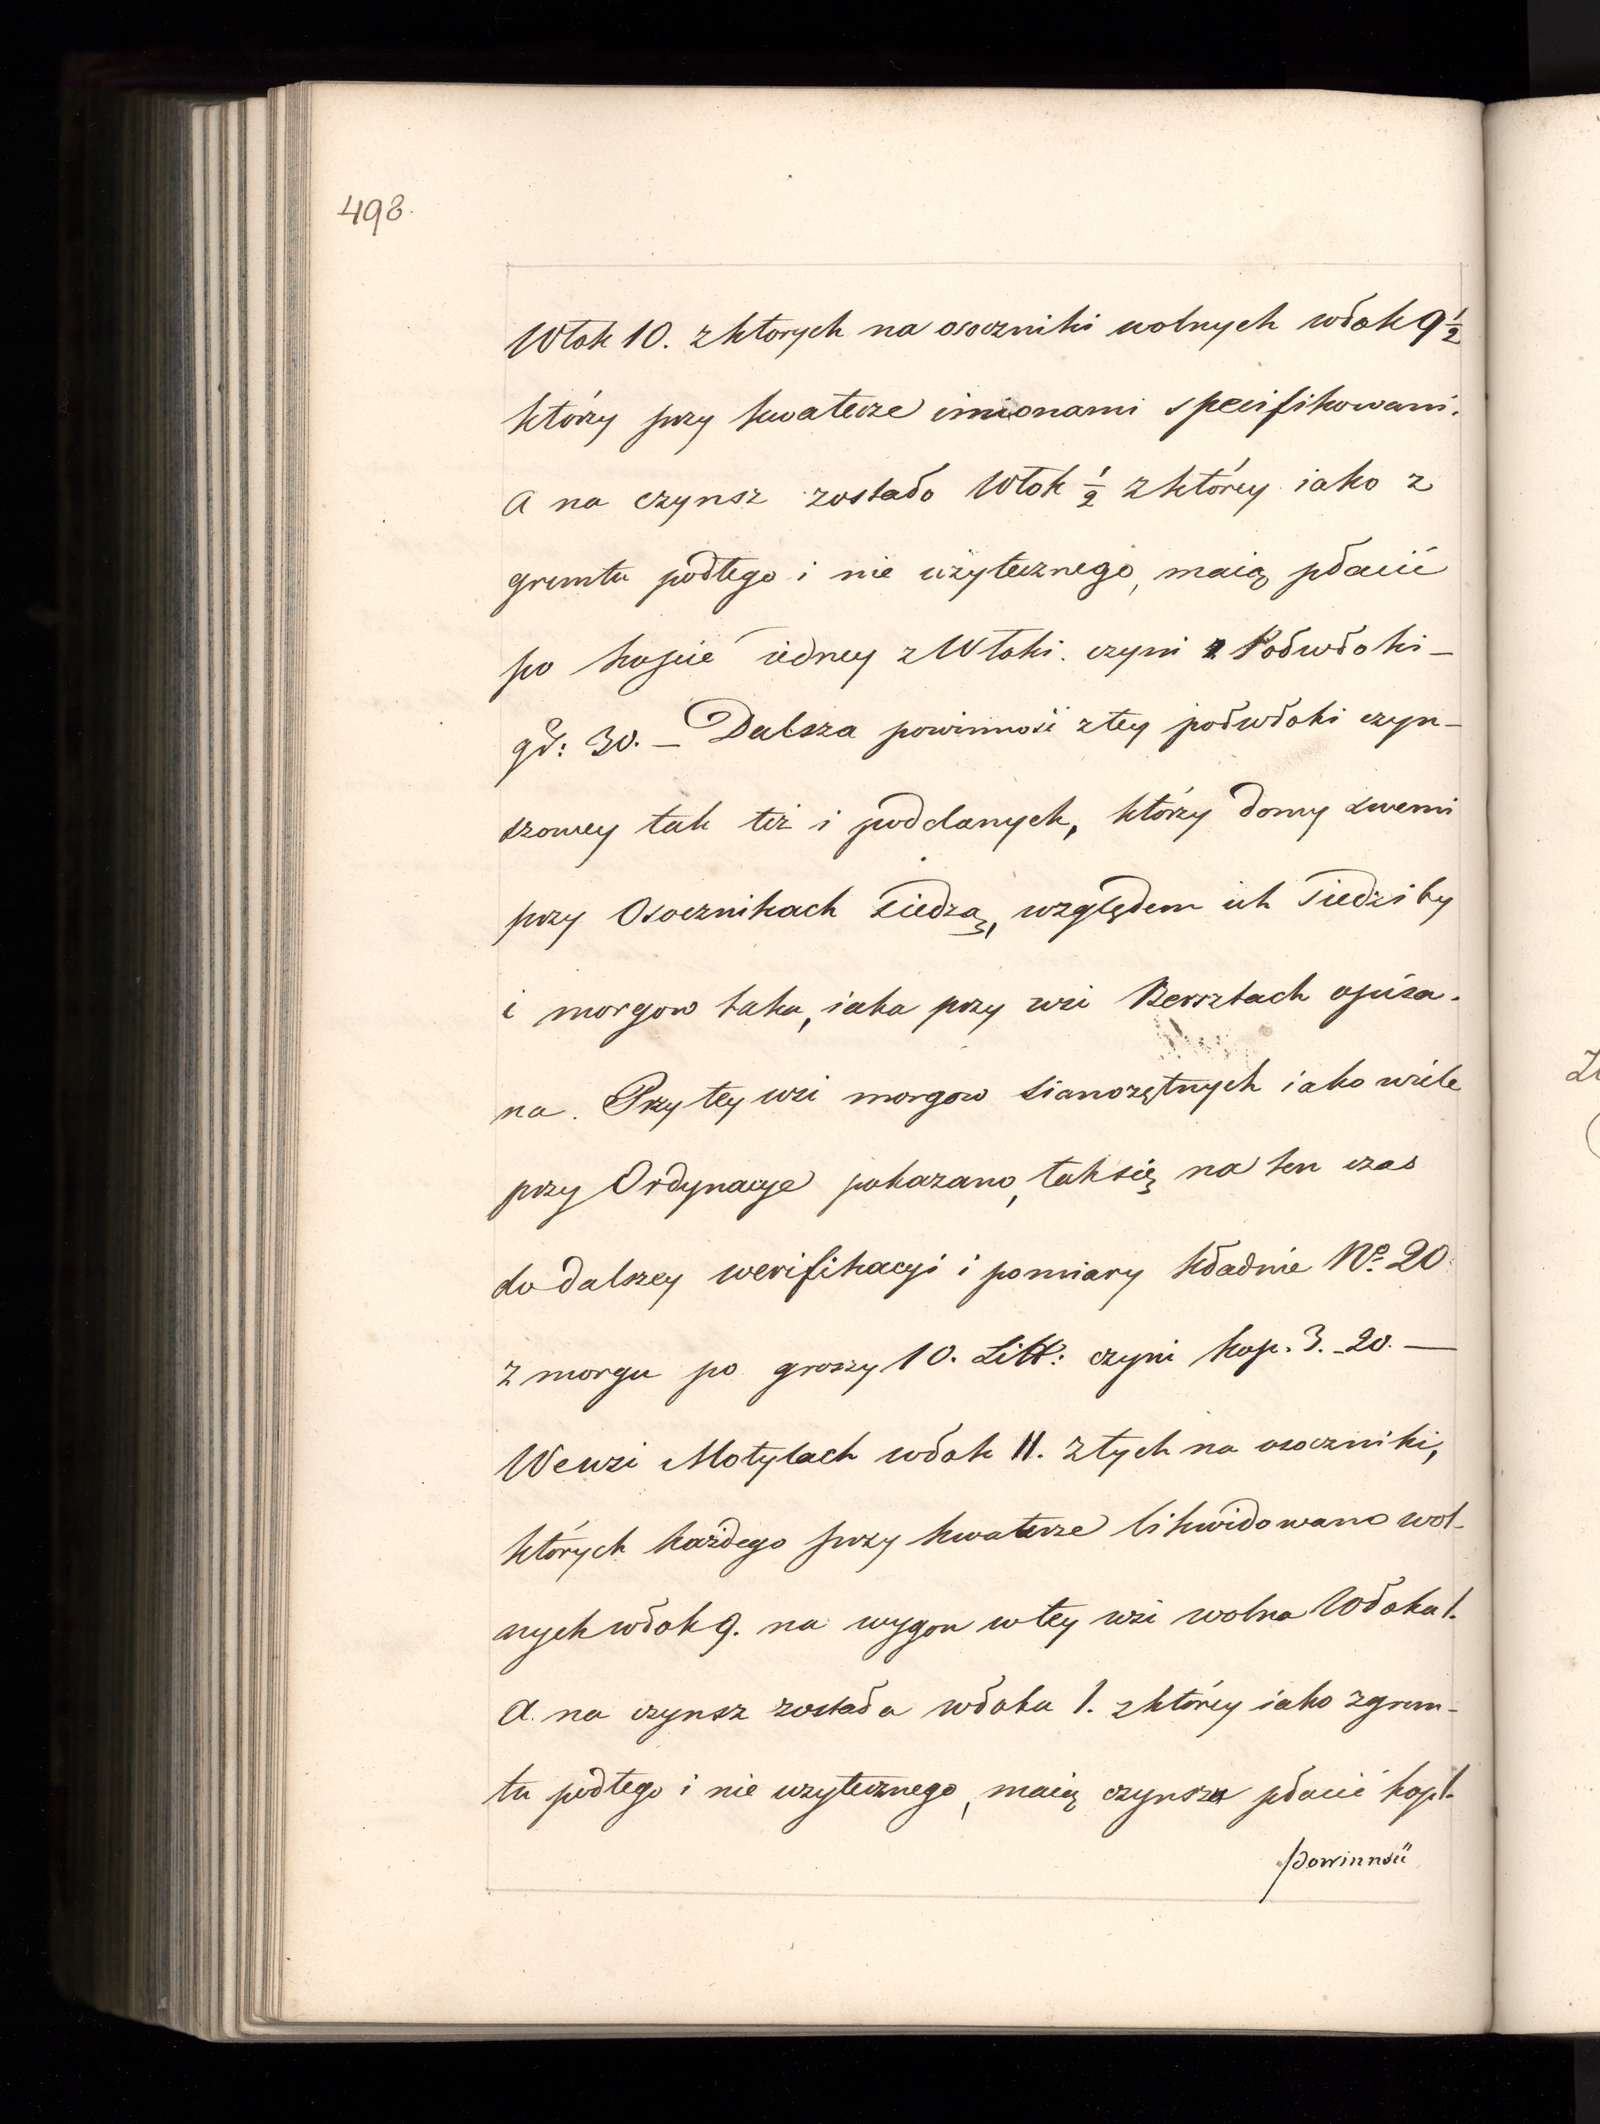 498.
Włok 10. z ktorych na osoczniki wolnych włok 9 1/2
którzy przy kwaterze imionami specifikowani.
A na czynsz zostało Włok 1/2 z którey iako z
gruntu podłego i nie użytecznego, maią płacić
po kopie iedney z Włoki. czyni z Połwłoki –
gł: 30. – Dalsza powinność z tey połwłoki czyn-
szowey tak też i poddanych, którzy domy swemi
przy Osocznikach siedzą, względem ich siedziby
i morgow taka, iaka przy wsi Bersztach opisa-
na. Przy tey wsi morgow sianożętnych iako wiele
przy Ordynacye pokazano, tak się na ten czas
do dalszey werifikacyi i pomiary kładnie No 20
z morgu po groszy 10. Litt: czyni kop. 3. 20. —
We wsi Motylach włok 11. z tych na osoczniki,
których każdego przy kwaterze likwidowano wol-
nych włok 9. na wygon w tey wsi wolna Włoka 1.
A na czynsz została włoka 1. z którey iako z grun-
tu podłego i nie uzytecznego, maią czynsza płacić kop 1.
powinność